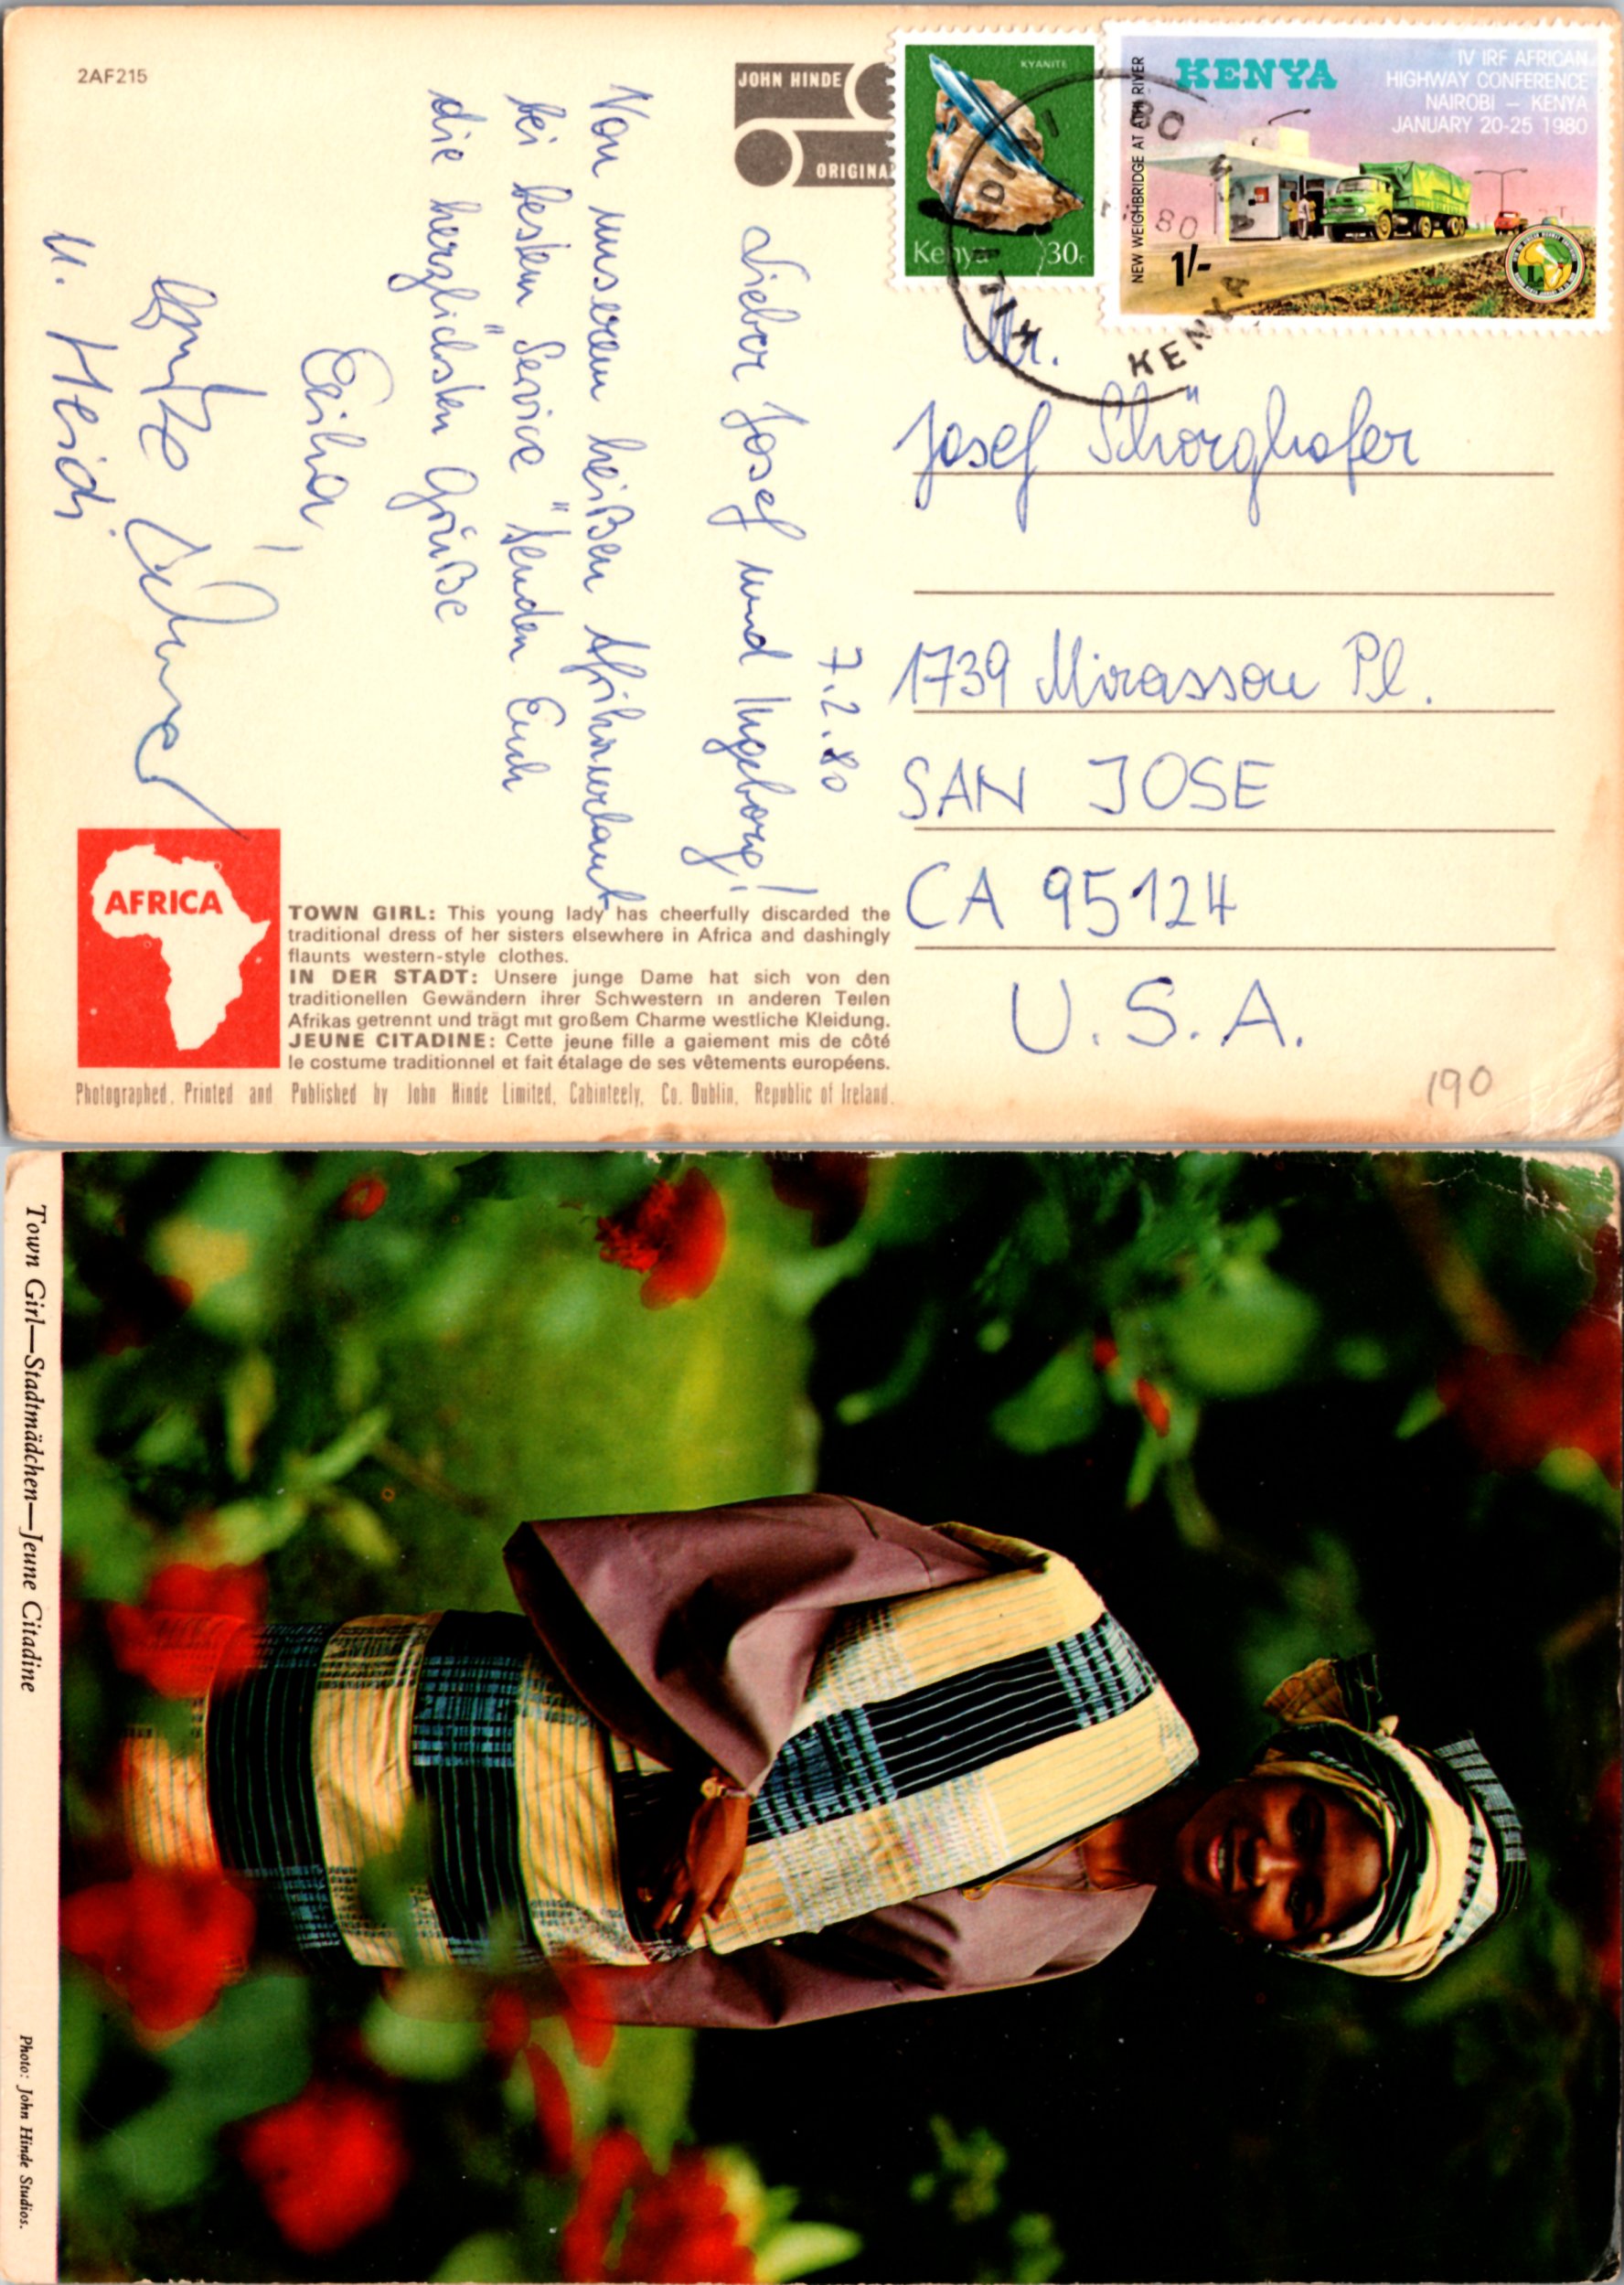 2AF215
JOHN HINDE
ORIGINAL
KYANITE
Kenya 30c
KENYA
IV IRF AFRICAN
HIGHWAY CONFERENCE
NAIROBI – KENYA
JANUARY 20-25 1980
NEW WEIGHBRIDGE AT ATHI RIVER
1/-
80
KENYA
7.2.80
Lieber Josef und Ingeborg!
Von unserem heißen Afrikaurlaub
bei bestem "Service" senden Euch
die herzlichsten Grüße
Erika,
u. Heidi
Mr.
Josef Schörghofer
1739 Mirassou Pl.
SAN JOSE
CA 95124
U.S.A.
190
AFRICA
TOWN GIRL: This young lady has cheerfully discarded the
traditional dress of her sisters elsewhere in Africa and dashingly
flaunts western-style clothes.
IN DER STADT: Unsere junge Dame hat sich von den
traditionellen Gewändern ihrer Schwestern in anderen Teilen
Afrikas getrennt und trägt mit großem Charme westliche Kleidung.
JEUNE CITADINE: Cette jeune fille a gaiement mis de côté
le costume traditionnel et fait étalage de ses vêtements européens.
Photographed, Printed and Published by John Hinde Limited, Cabinteely, Co. Dublin, Republic of Ireland.
Town Girl—Stadtmädchen—Jeune Citadine
Photo: John Hinde Studios.